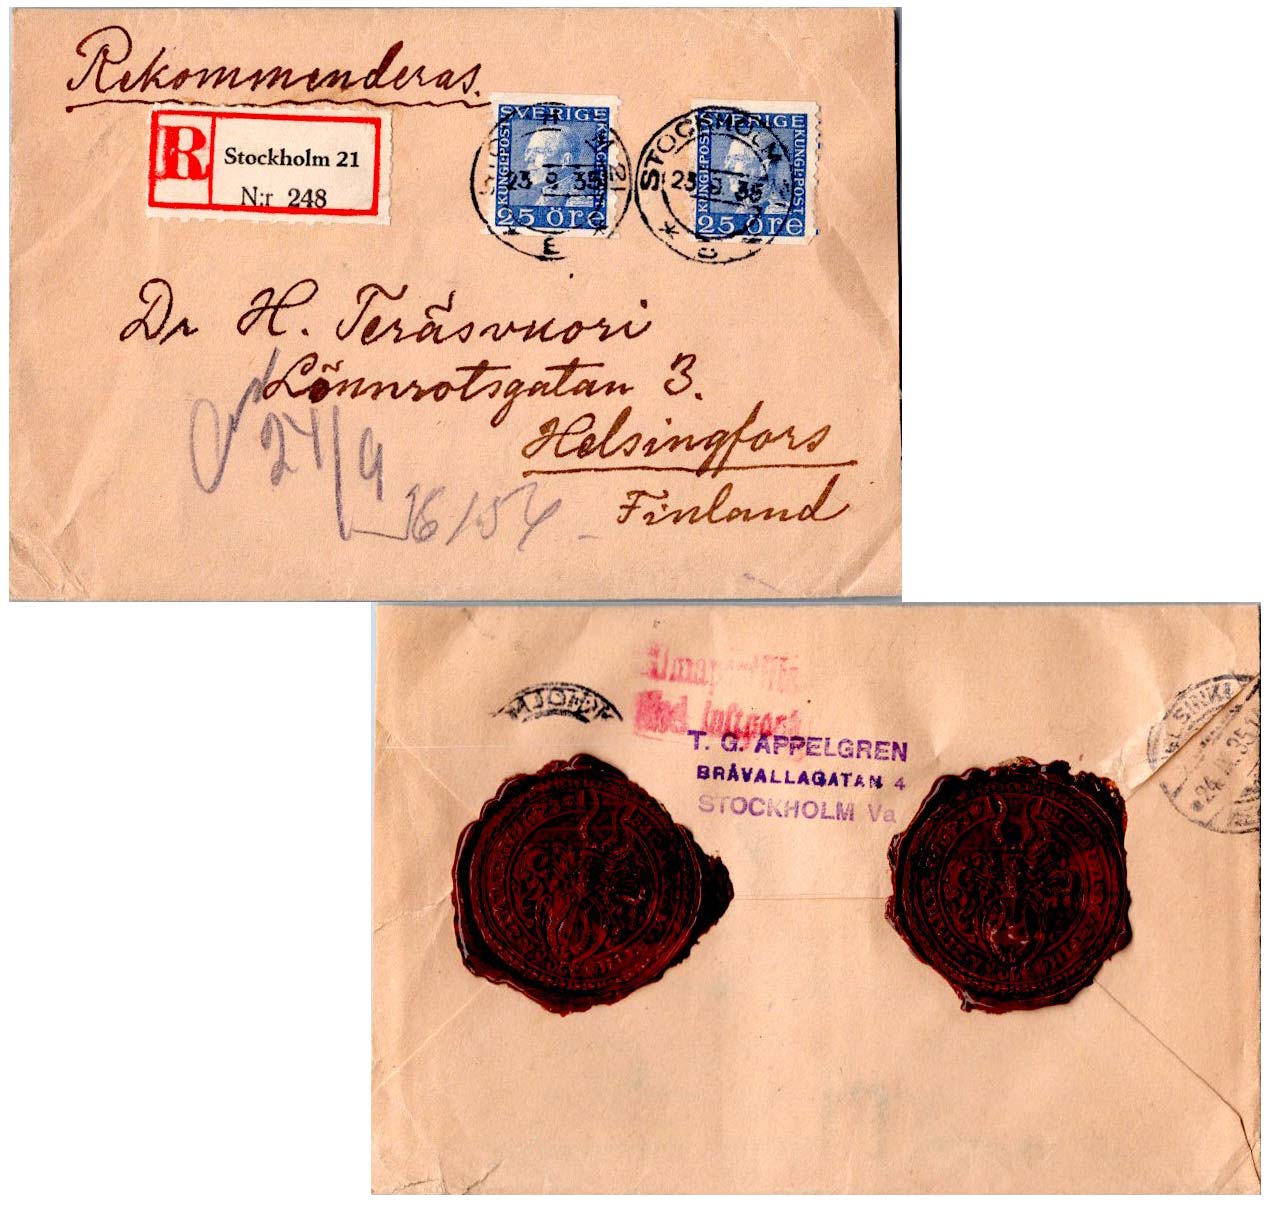 Rekommenderas.
R
Stockholm 21
N:r 248
SVERIGE
KUNGL·POST
KUNGL·POST
25 öre
23 9 35
SVERIGE
KUNGL·POST
KUNGL·POST
25 öre
STOCKHOLM
23 9 35
Dr H. Teräsvuori
Lönnrotsgatan 3.
Helsingfors
Finland
24/9
16/54
med luftpost
T. G. APPELGREN
BRÅVALLAGATAN 4
STOCKHOLM Va
24.IX.35